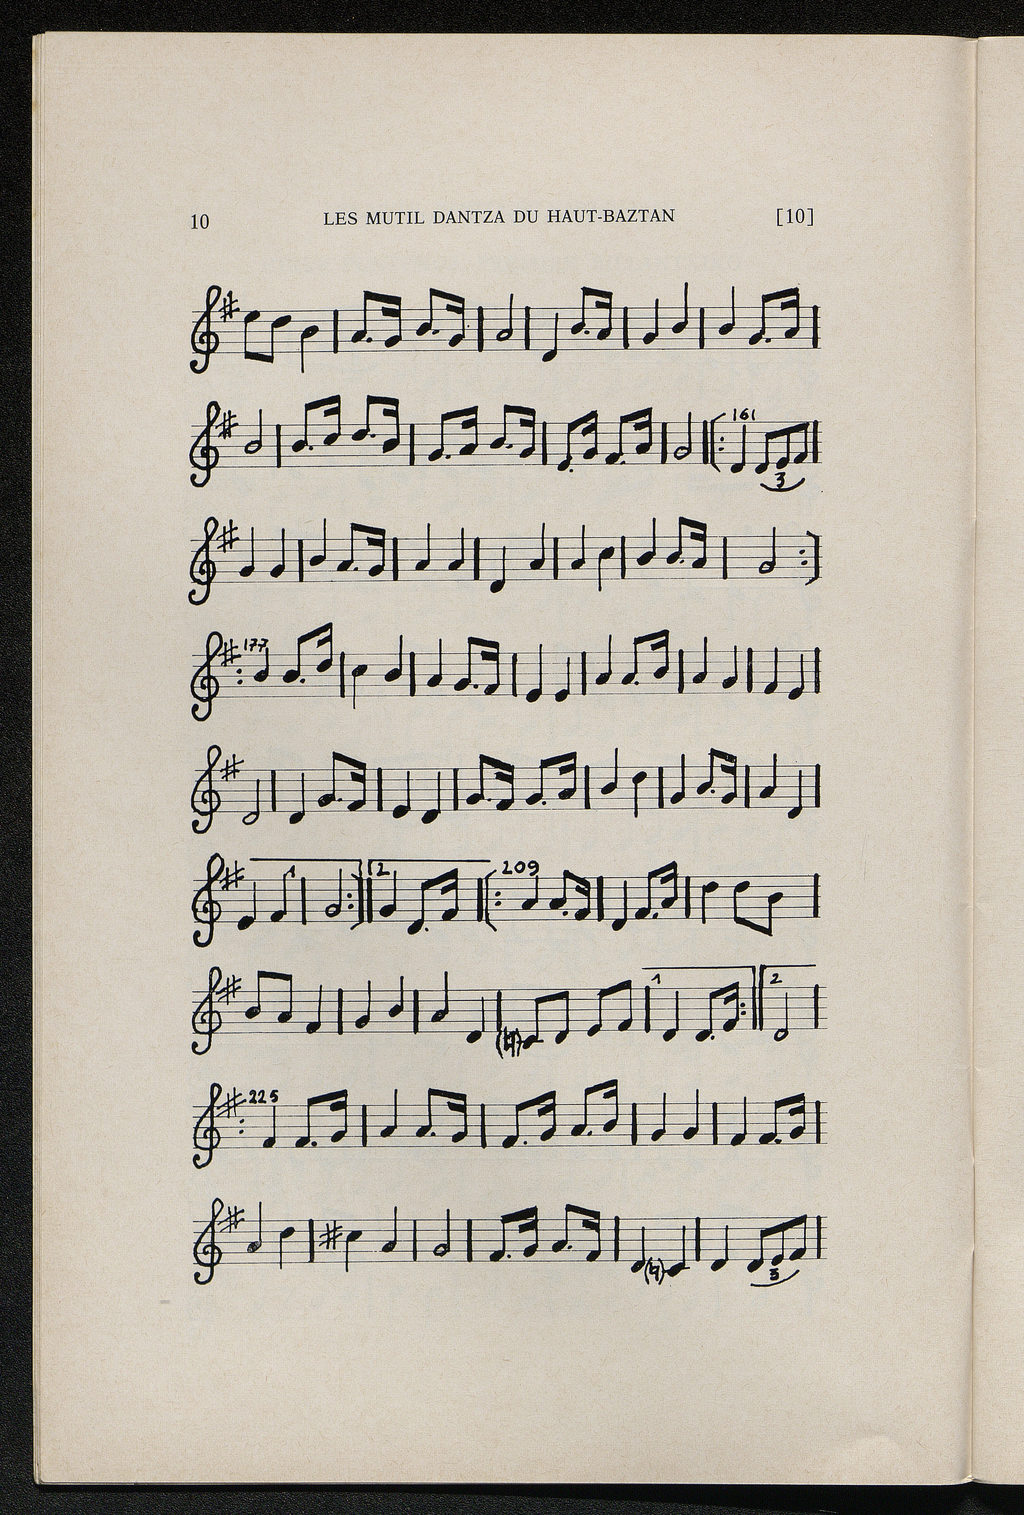 10 LES MUTIL DANTZA DU HAUT-BAZTAN [10]
161
3
177
1 2 209
1 2
225
3